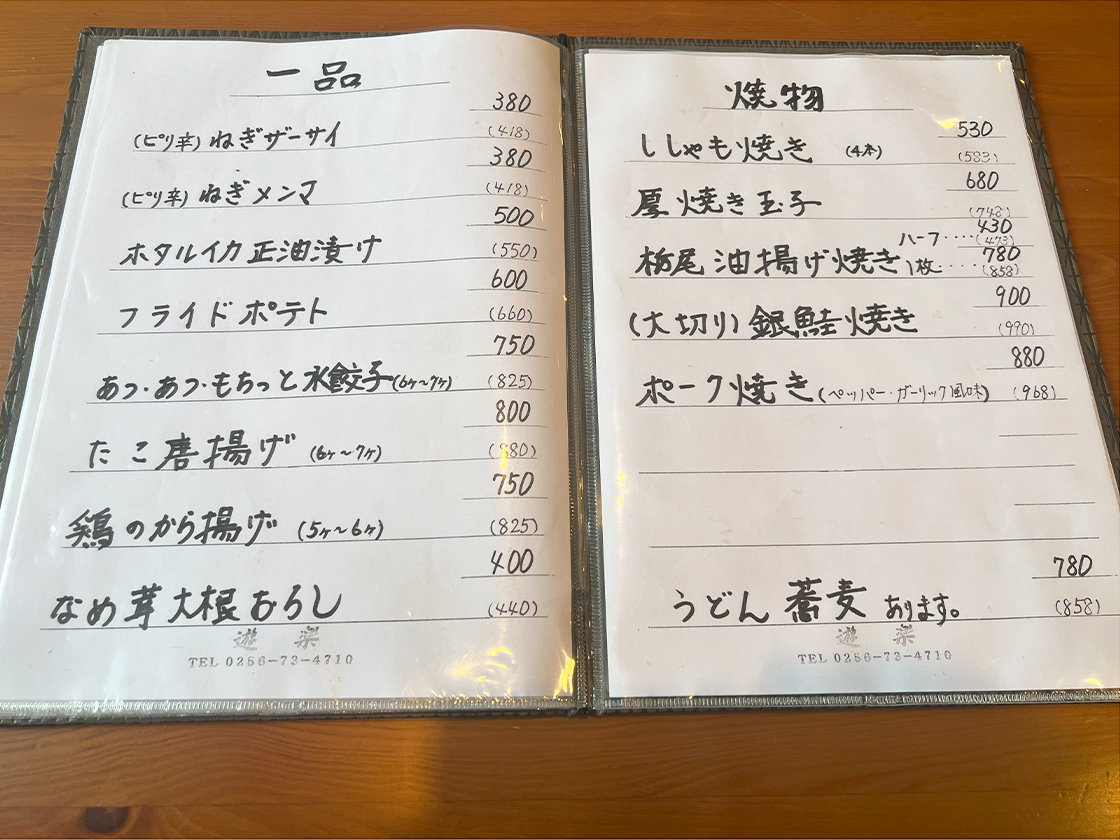 一品
380
(ピリ辛) ねぎザーサイ (418)
380
(ピリ辛) ねぎメンマ (418)
500
ホタルイカ正油漬け (550)
600
フライドポテト (660)
750
あつ・あつ・もちっと水餃子(6ヶ〜7ヶ) (825)
800
たこ唐揚げ (6ヶ〜7ヶ) (880)
750
鶏のから揚げ (5ヶ〜6ヶ) (825)
400
なめ茸大根おろし (440)
遊楽
TEL 0256-73-4710
焼物
530
ししゃも焼き (4本) (583)
680
厚焼き玉子 (748)
ハーフ・・・・ 430 (473)
栃尾油揚げ焼き 1枚・・・・ 780 (858)
900
(大切り) 銀鮭焼き (990)
880
ポーク焼き (ペッパー・ガーリック風味) (968)
780
うどん 蕎麦 あります。 (858)
遊楽
TEL 0256-73-4710